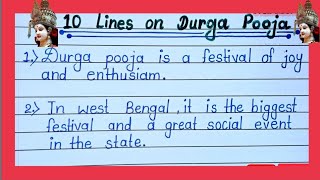 10 Lines on Durga Pooja
1.) Durga pooja is a festival of joy
and enthusiam.
2.) In west Bengal, it is the biggest
festival and a great social event
in the state.